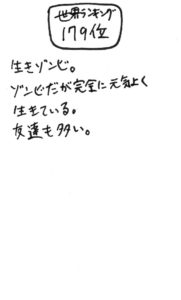 世界ランキング
179位
生きゾンビ。
ゾンビだが完全に元気よく
生きている。
友達も多い。